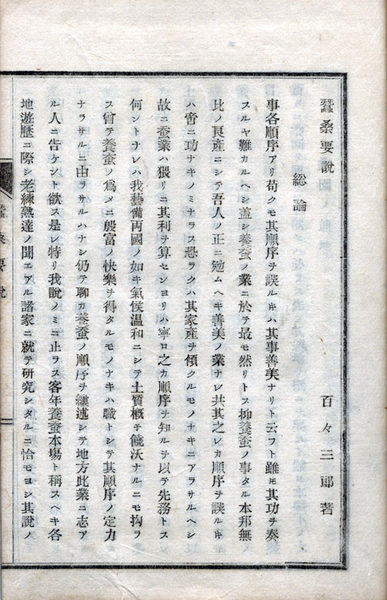 蠶桑要說
百々三郎著
總論
事各順序アリ苟クモ其順序ヲ誤ルキハ其事善美ナリト云フト雖モ其功ヲ奏
スルヤ難カルヘシ盖シ養蚕ノ業ニ於テ最モ然リトス抑養蚕ノ事タル本邦無
比ノ良産ニシテ吾人ノ正ニ勉ムヘキ善美ノ業ナレ共其之レカ順序ヲ誤ルキ
ハ啻ニ功ナキノミナラス恐ラクハ其家産ヲ傾クルモノナキニアラサルヘシ
故ニ蚕業ハ猥リニ其利ヲ算センヨリハ寧ロ之カ順序ヲ知ルヲ以テ先務トス
何ントナレハ我藝備兩國ノ如キ氣侯温和ニシテ土質概子饒沃ナルニモ拘ヲ
ス曾テ養蚕ノ爲メニ殷富ノ快樂ヲ得タルモノナキハ職トシテ其順序ノ定力
ナラサルニ由ラサルハナシ仍テ聊カ養蚕ノ順序ヲ縷述シテ地方此業ニ志ア
ル人ニ告ケント欲ス是レ特リ我說ノミニ止ラス客年養蚕本塲ト稱スヘキ各
地遊歷ニ際シ老練熟達ノ聞エアル諸家ニ就テ研究シタルニ恰モヨシ其說ノ